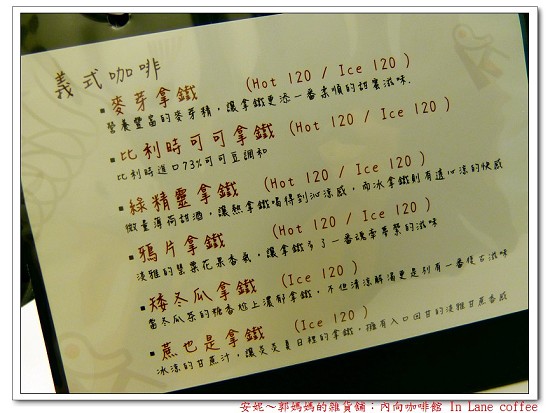 義式咖啡
▪麥芽拿鐵 (Hot 120 / Ice 120 )
營養豐富的麥芽精，讓拿鐵更添一番柔順的甜蜜滋味.
▪比利時可可拿鐵 (Hot 120 / Ice 120 )
比利時進口73%可可豆調和
▪綠精靈拿鐵 (Hot 120 / Ice 120 )
微量薄荷甜酒，讓熱拿鐵喝得到沁涼感，而冰拿鐵則有透心涼的快感
▪鴉片拿鐵 (Hot 120 / Ice 120 )
淡雅的罌粟花果香氣，讓拿鐵多了一番魂牽夢縈的滋味
▪矮冬瓜拿鐵 (Ice 120 )
當冬瓜茶的糖香尬上濃郁拿鐵，不但清涼解渴更是別有一番復古滋味
▪蔗也是拿鐵 (Ice 120 )
冰涼的甘蔗汁，讓炎炎夏日裡的拿鐵，擁有入口回甘的淡雅甘蔗香感
安妮～郭媽媽的雜貨舖：內向咖啡館 In Lane coffee